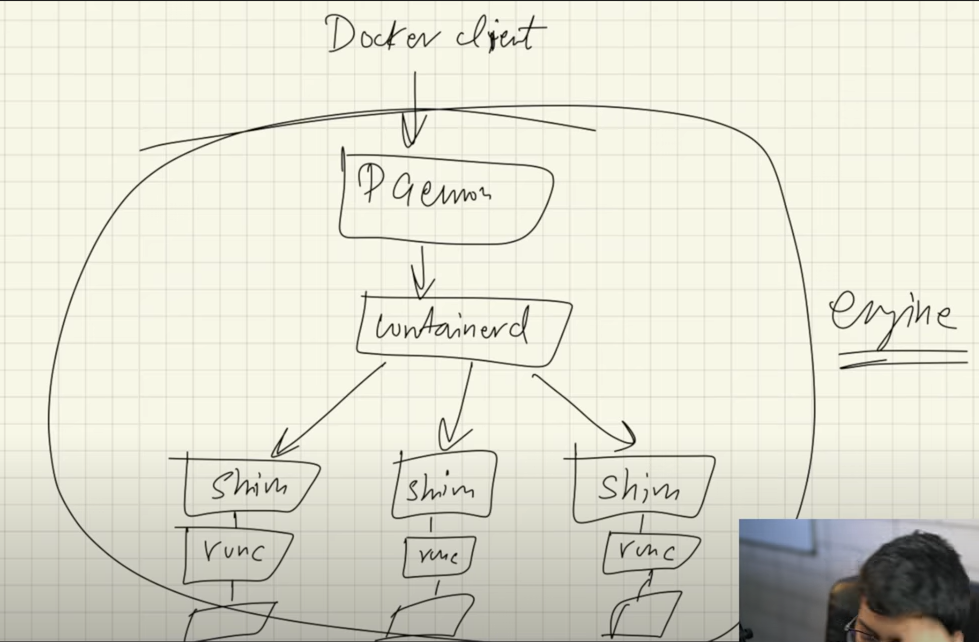 Docker client
Daemon
containerd
engine
shim shim shim
runc runc runc